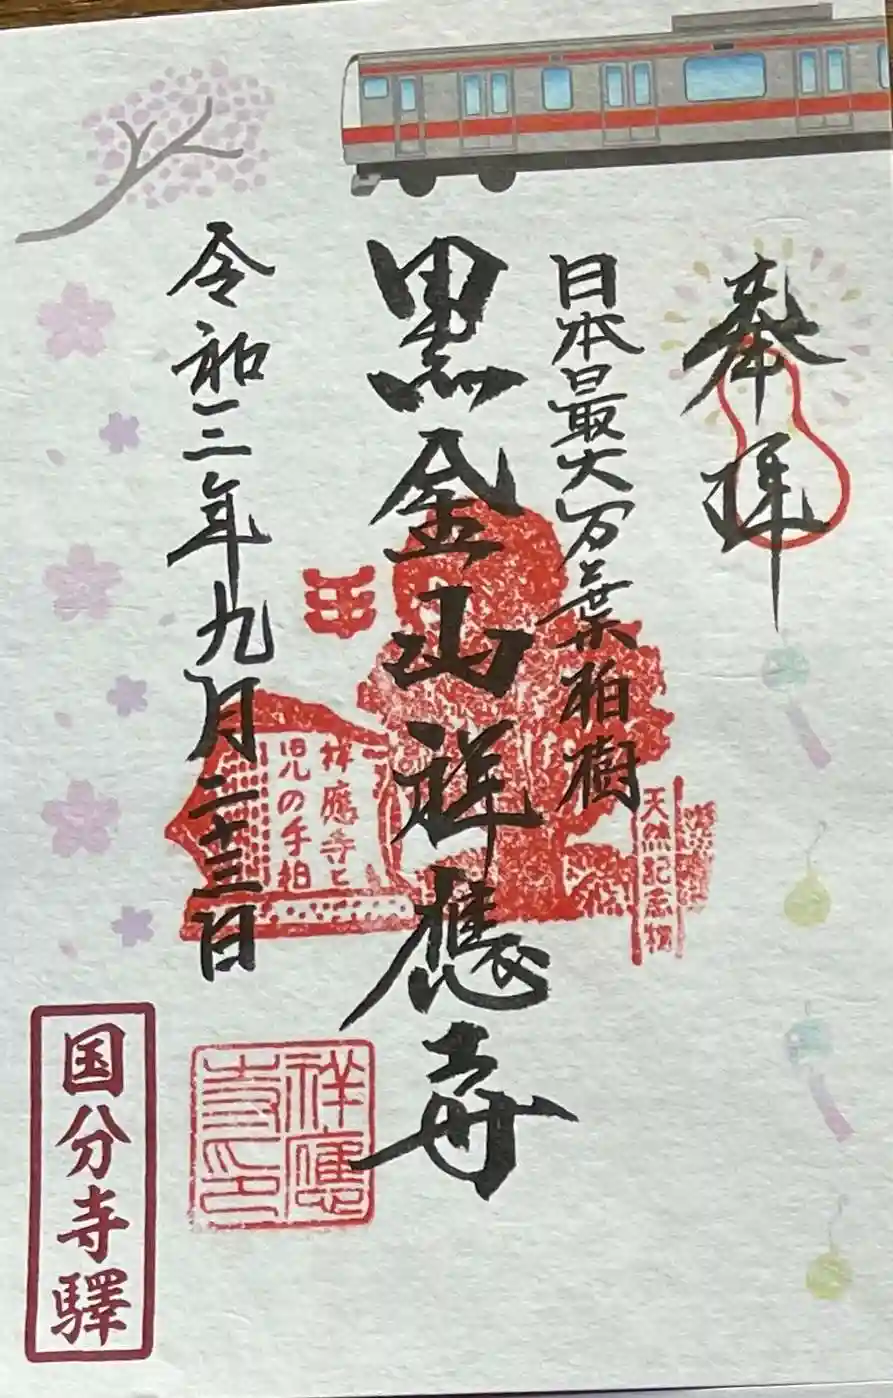 奉拝
日本最大万葉柏樹
天然記念物
黒金山祥應寺
祥應寺と
児の手柏
祥應
寺印
令和三年九月二十三日
国分寺驛